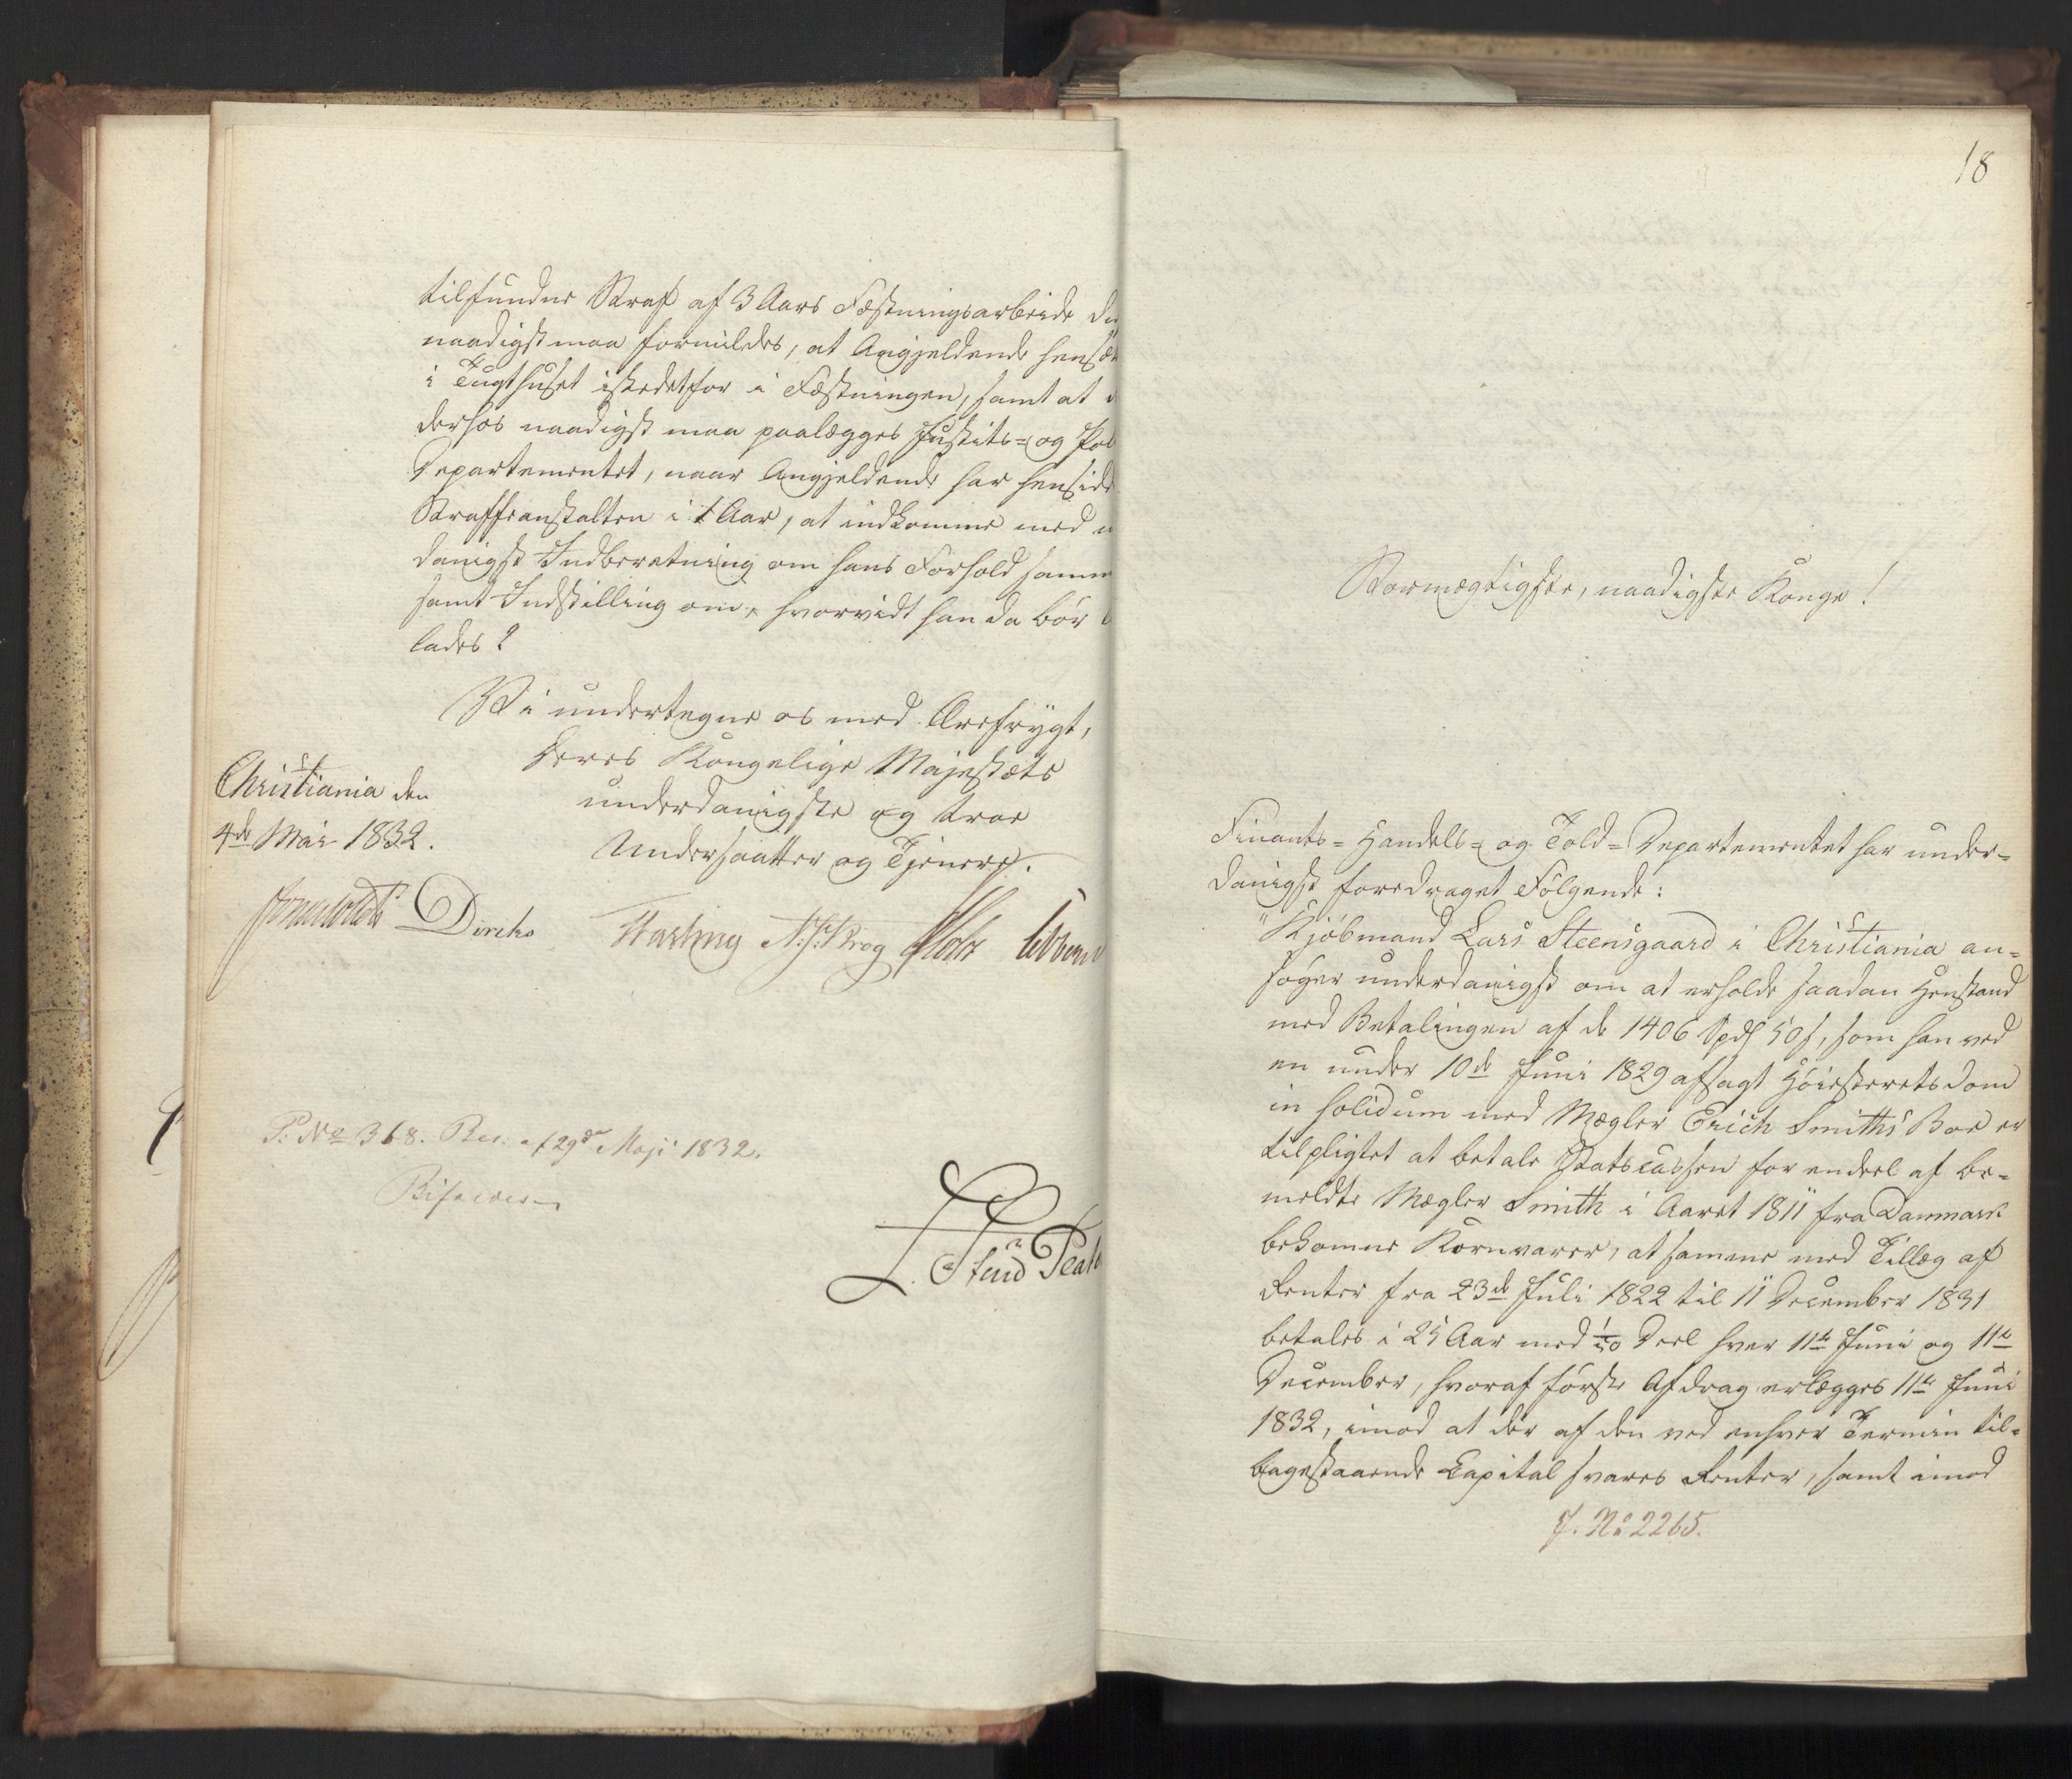 tilfundne Straf af 3 Aars Fæstningsarbeide
naadigst maa formildes, at Angjeldende hensæt
i Tugthuset istedetfor i Fæstningen, samt at
derhos naadigst maa paalægges Justits- og Pol
Departementet, naar Angjeldende har hensidd
Straffeanstalten i 1 Aar, at indkomme med
danigst Indberetning om hans Forhold samm
samt Indstilling om, hvorvidt han da bør
lades?
Vi undertegne os med Ærefrygt,
Deres Kongelige Majestæts
underdanigste og troe
Undersaatter og Tjenere.
Christiania den
4de Mai 1832.
Diriks N. J. Krog Holst
P: No 368. Res: af 29de Maji 1832.
Bifaldes
18
Stormægtigste, naadigste Konge!
Finants- Handels- og Told-Departementet har under-
danigst foredraget Følgende:
"Kjøbmand Lars Steensgaard i Christiania an-
søger underdanigst om at erholde saadan Henstand
med Betalingen af de 1406 Spd 50 s, som han ved
en under 10de Juni 1829 afsagt Høiesteretsdom
in solidum med Mægler Erich Smiths Boe er
tilpligtet at betale Statscassen for endeel af be-
meldte Mægler Smith i Aaret 1811 fra Danmark
bekomne Kornvarer, at samme med Tillæg af
Renter fra 23de Juli 1822 til 11 December 1831
betales i 25 Aar med 1/50 Deel hver 11te Juni og 11te
December, hvoraf første Afdrag erlægges 11te Juni
1832, imod at der af den ved enhver Termin til-
bagestaaende Capital svares Renter, samt imod
J. No 2265.